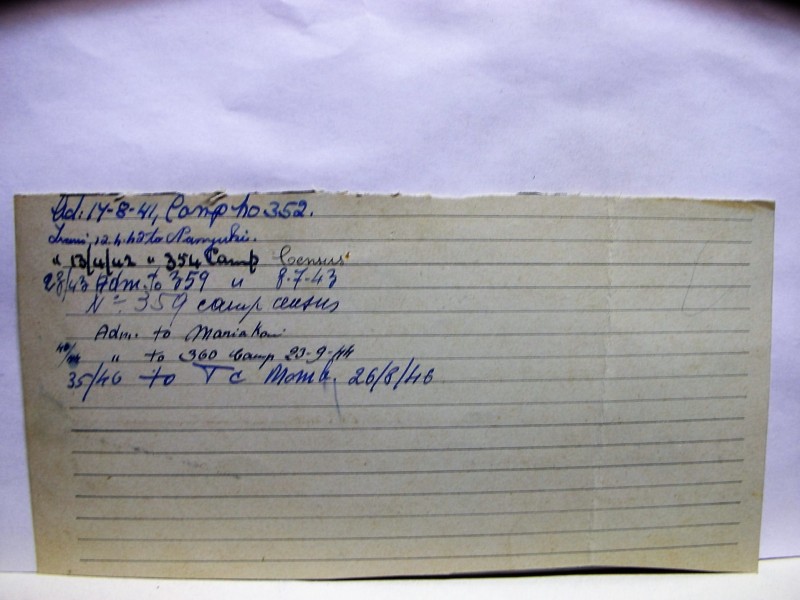 Ad: 17-8-41, Camp No 352.
12.4.42 to Nanyuki.
" 13/4/42 " 354 Camp Census
28/43 Adm. to 359 " 8-7-43
Nº 359 camp census
Adm. to Mariakani
" to 360 Camp 23-9-44
35/46 to T C Momb. 26/8/46